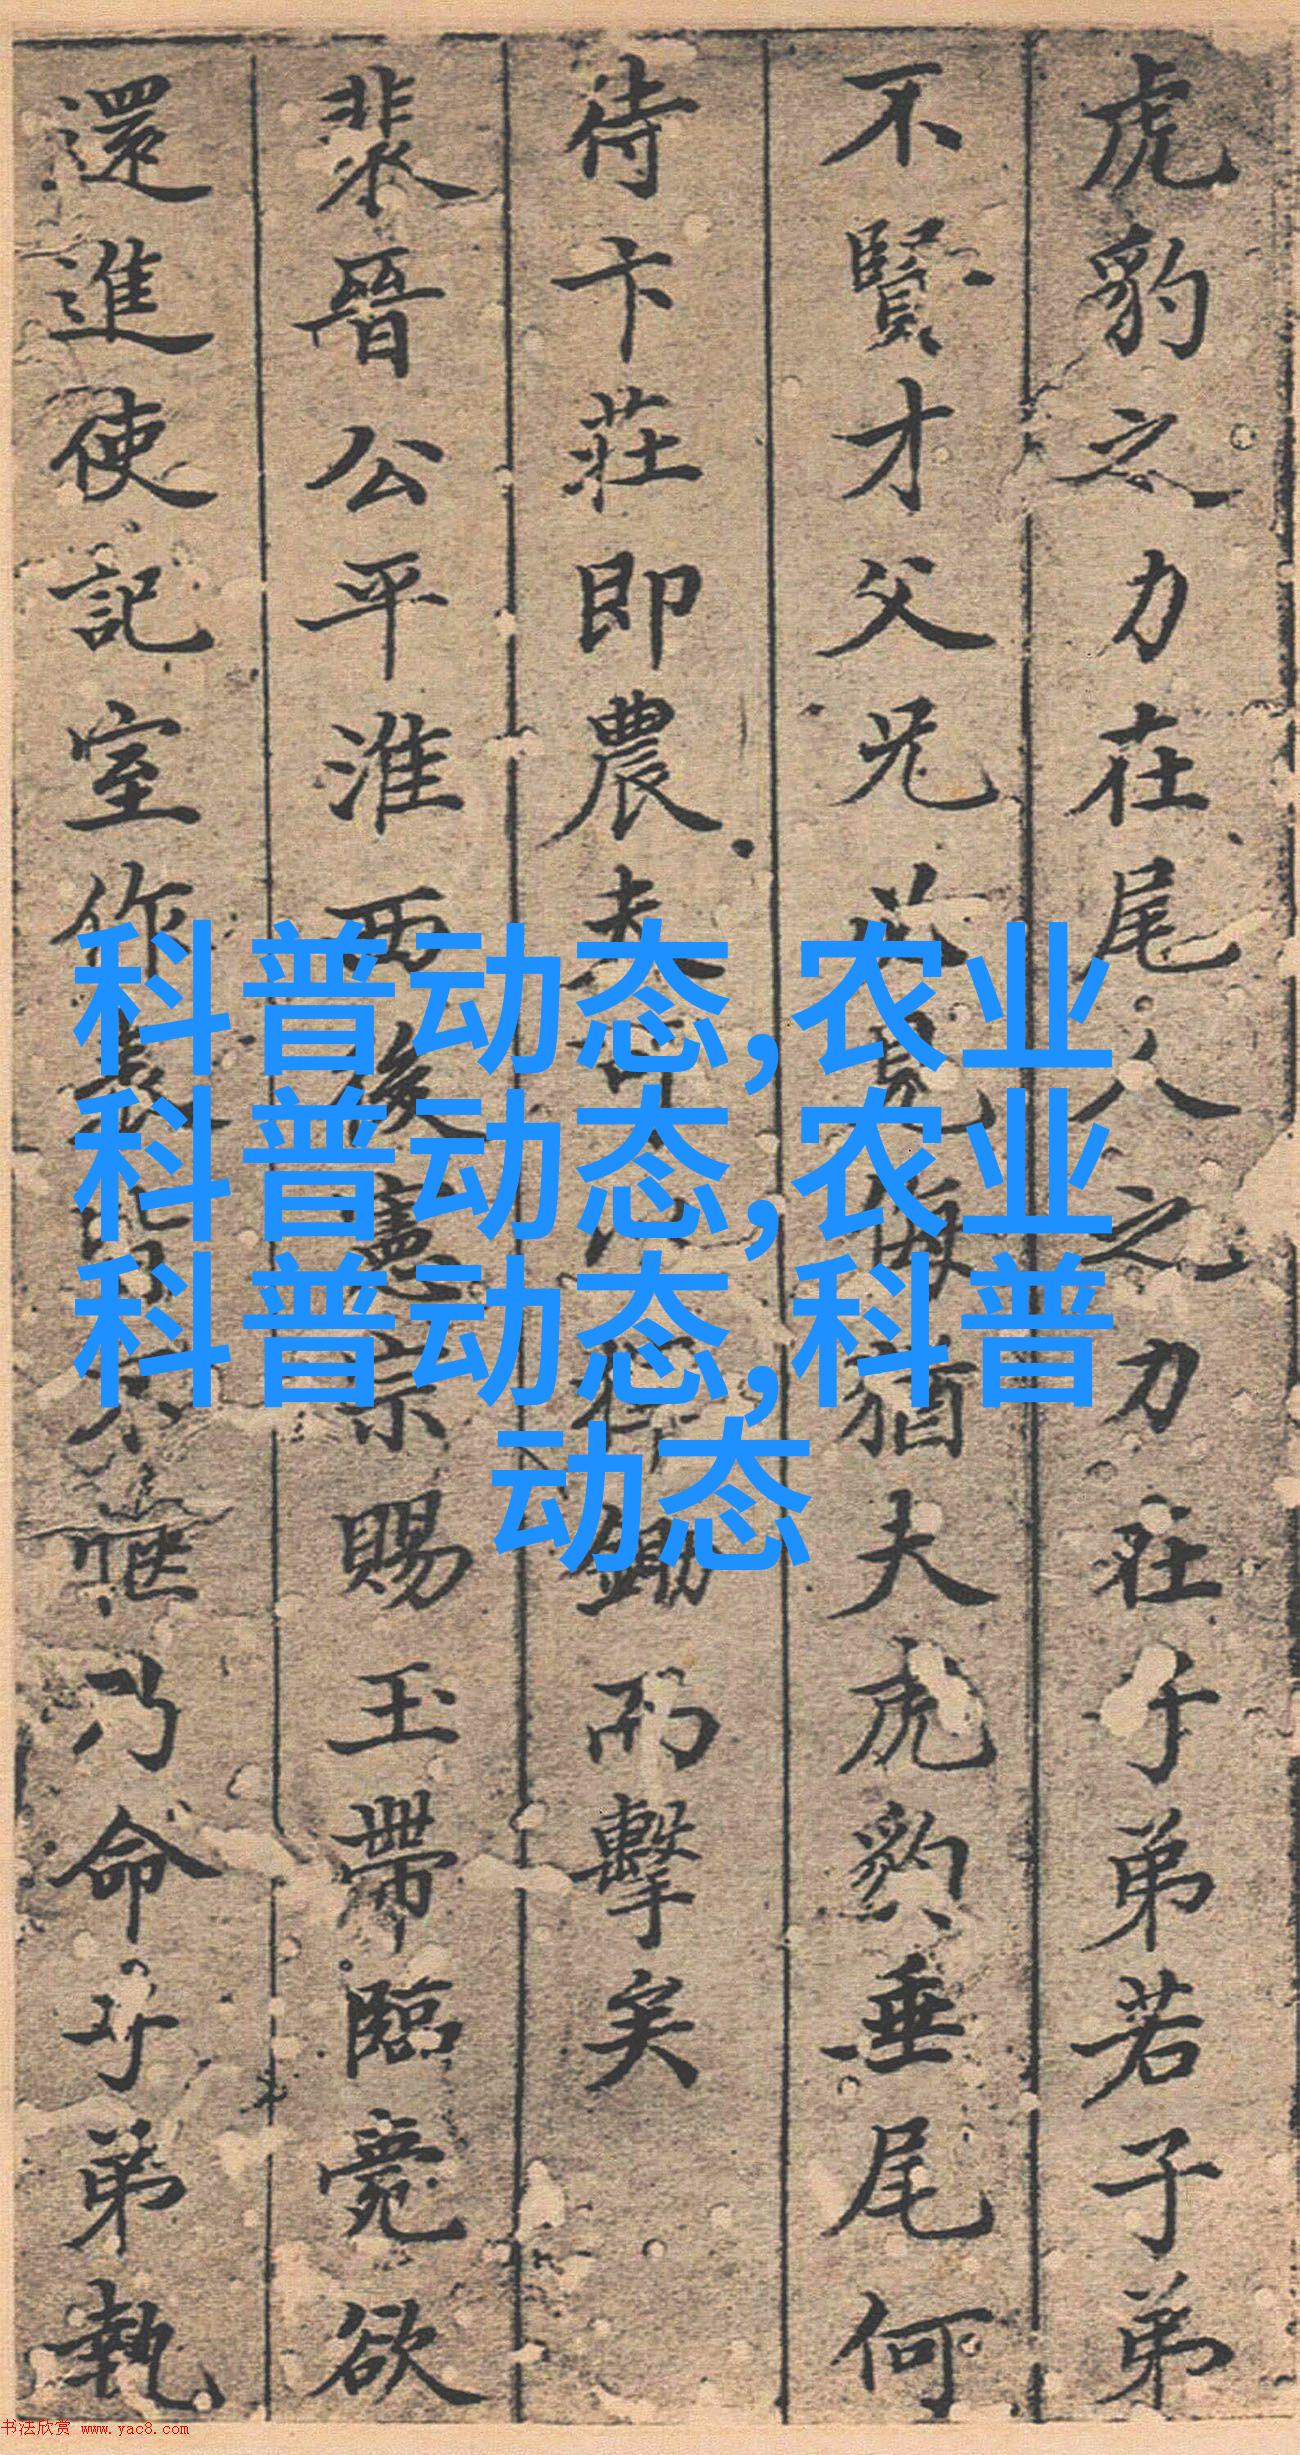 虎豹之力在尾人之力在子弟若子弟
不賢才父兄
猶夫虎豹垂尾何
待卞莊即農夫
鋤而擊矣
裴晉公平淮西後憲宗賜玉帶臨薨欲
還進使記室作表
乃命子弟執
科普动态,农业
科普动态,农业
科普动态,科普
动态
书法欣赏 www.yac8.com